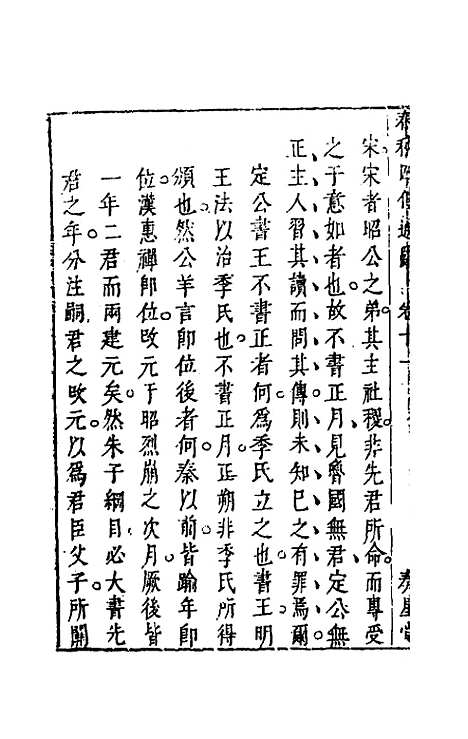 宋宋者昭公之弟其主社稷非先君所命而專受
之于意如者也故不書正月見魯國無君定公無
正主人習其讀而問其傳則未知已之有罪焉爾
定公書王不書正者何爲季氏立之也書王明
王法以治季氏也不書正月正朔非季氏所得
頒也然公羊言卽位後者何秦以前皆踰年卽
位漢惠禪卽位改元于昭烈崩之次月厥後皆
一年二君而兩建元矣然朱子綱目必大書先
君之年分注嗣君之改元以爲君臣父子所關